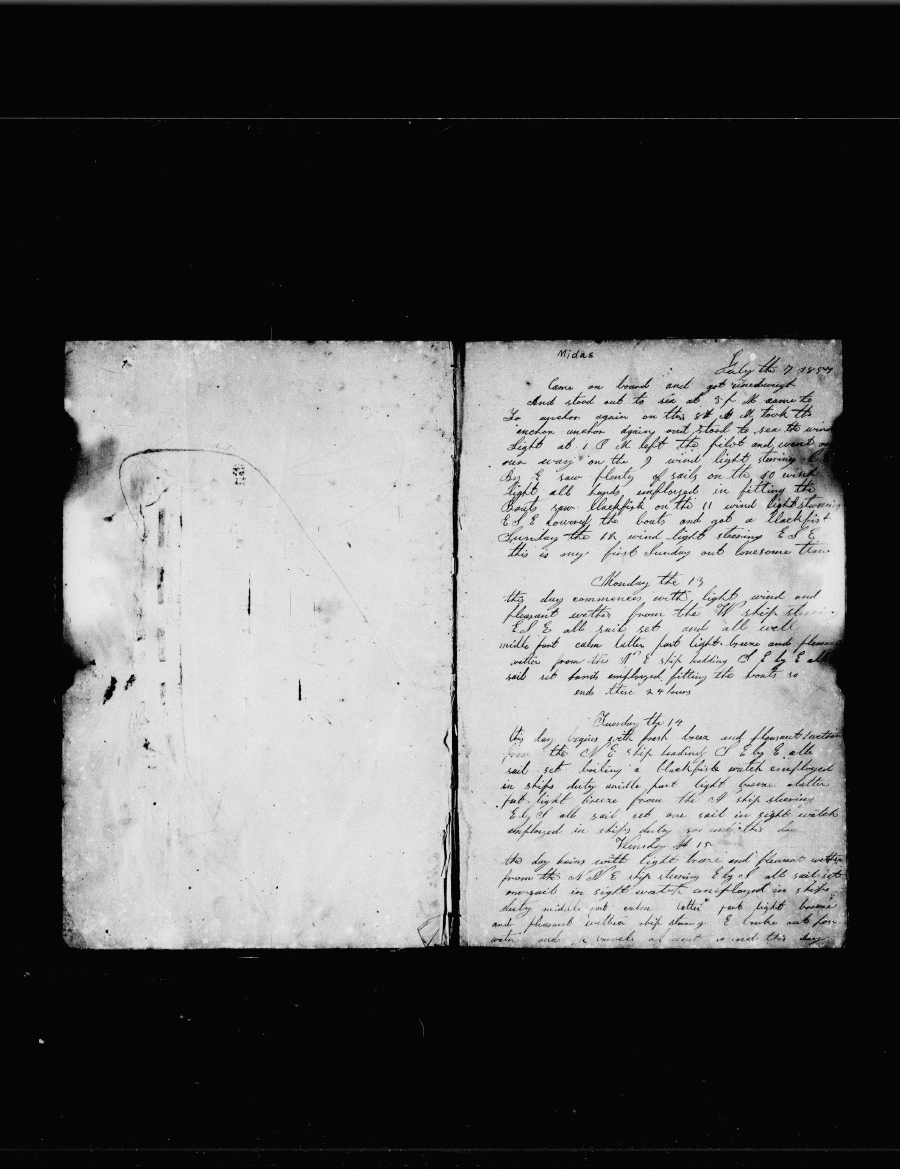 Midas
July the 7 1857
Came on board and got
And stood out to sea at 3 P M came to
To anchor again on this 8th A M took the
anchor again and stood to sea the wind
Light at 1 P M left the pilot and went on
our way on the 9 wind light steering
By E saw plenty of sails on the 10 wind
light all hands employed in fitting the
Boats saw blackfish on the 11 wind light steering
E S E Lowered the boats and got a blackfish
Sunday the 12 wind light steering E S E
this is my first Sunday out lonesome time
Monday the 13
this day commences with light wind and
pleasant wether from the W ship
E S E all sail set and all well
midle part calm latter part light breeze and
wether from the N E ship hedding S E by E all
sail set hands employed fitting the boats so
ends these 24 hours
Tuesday the 14
this day begins with fresh breze and pleasant
from the N E ship heading S E by E all
sail set boiling a blackfish watch employed
in ships duty midle part light breeze latter
part light breeze from the N ship steering
E by S all sail set one sail in sight watch
employed in ships duty so ends this day
the day begins with light breze and pleasant wether
from the N N E ship steering E by S all sail set
one sail in sight watch employed in ships
duty midle part calm latter part light breeze
and pleasant wether ship E broke out for
water and this day